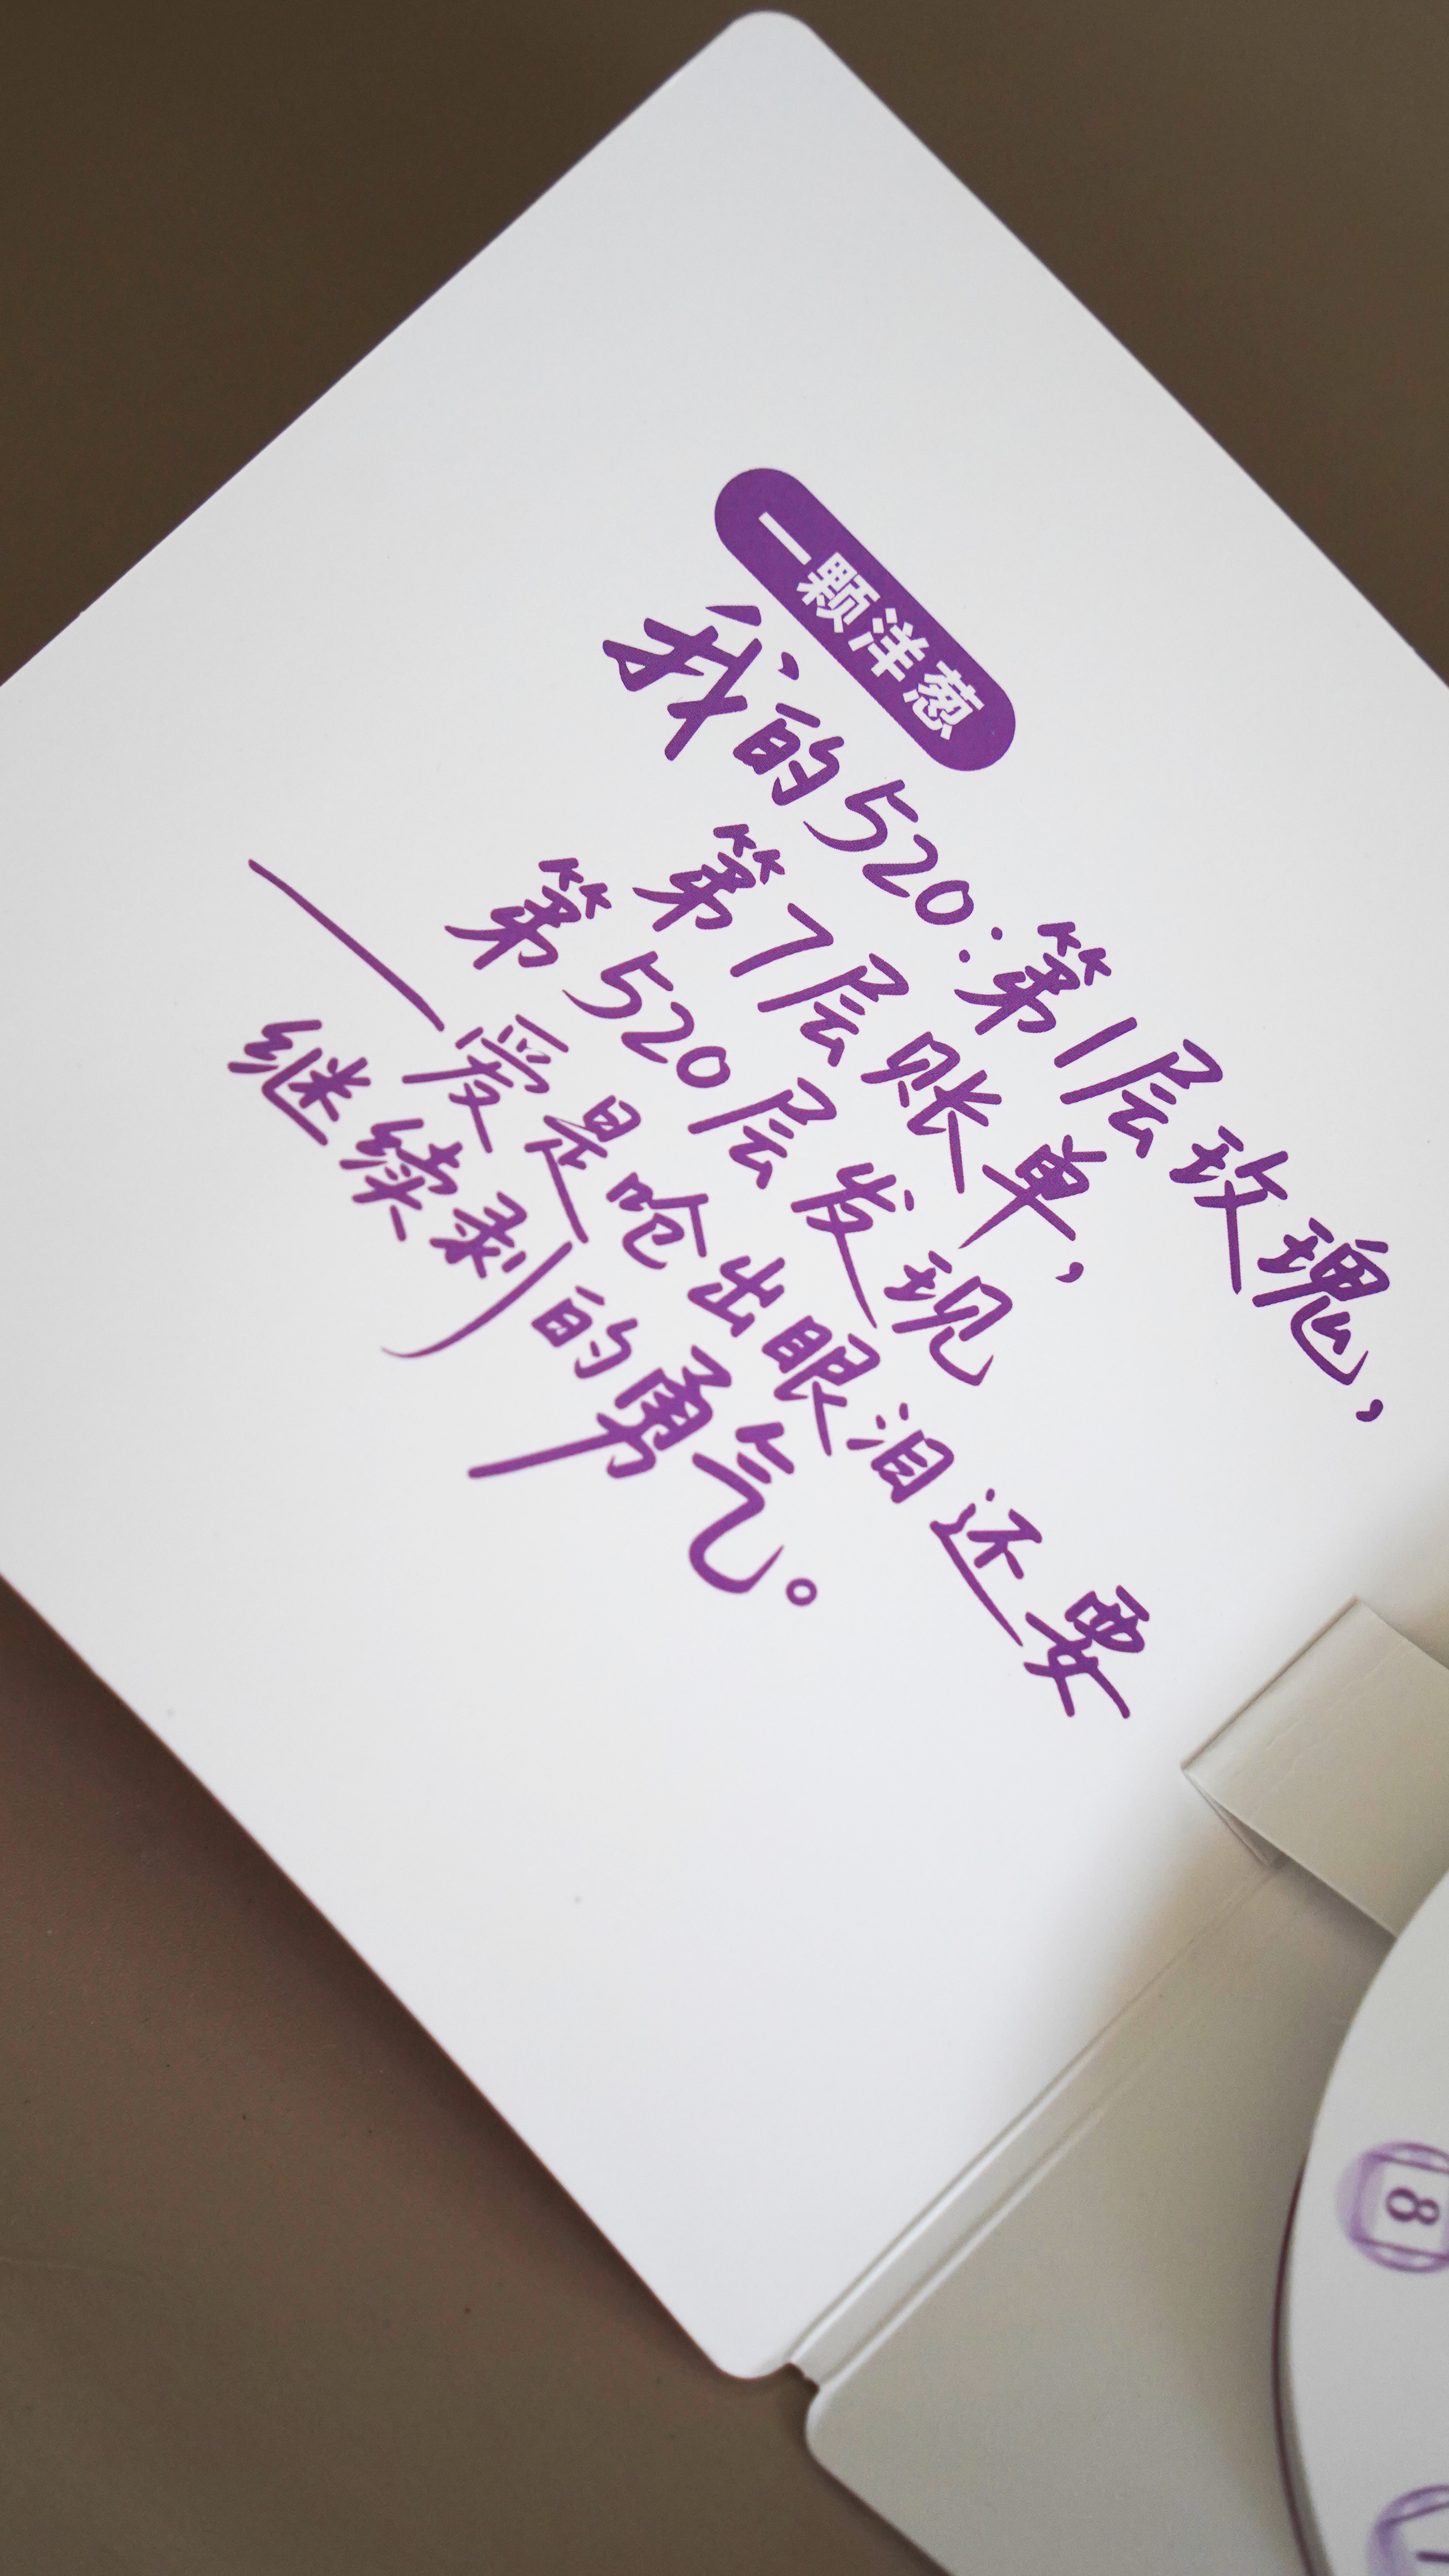 一颗洋葱
我的520：第1层玫瑰，
第7层账单，
第520层发现
——爱是呛出眼泪还要
继续剥的勇气。
8